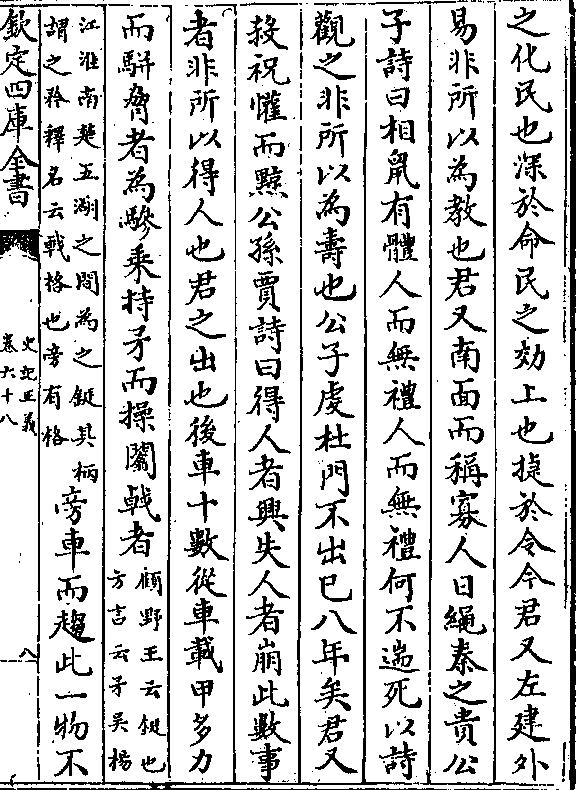 之化民也深於命民之效上也捷於令今君又左建外
易非所以為教也君又南面而稱寡人日繩秦之貴公
子詩曰相鼠有體人而無禮人而無禮何不遄死以詩
觀之非所以為壽也公子虔杜門不出已八年矣君又
殺祝懽而黥公孫賈詩曰得人者興失人者崩此數事
者非所以得人也君之出也後車十數從車載甲多力
而駢脅者為驂乗持矛而操闟㦸者顧野王云鋋也
方言云矛吳楊
江淮南楚五湖之間為之鋋其柄
謂之矜釋名云戟格也旁有格
旁車而趨此一物不
欽定四庫全書
史記正義
卷六十八
八